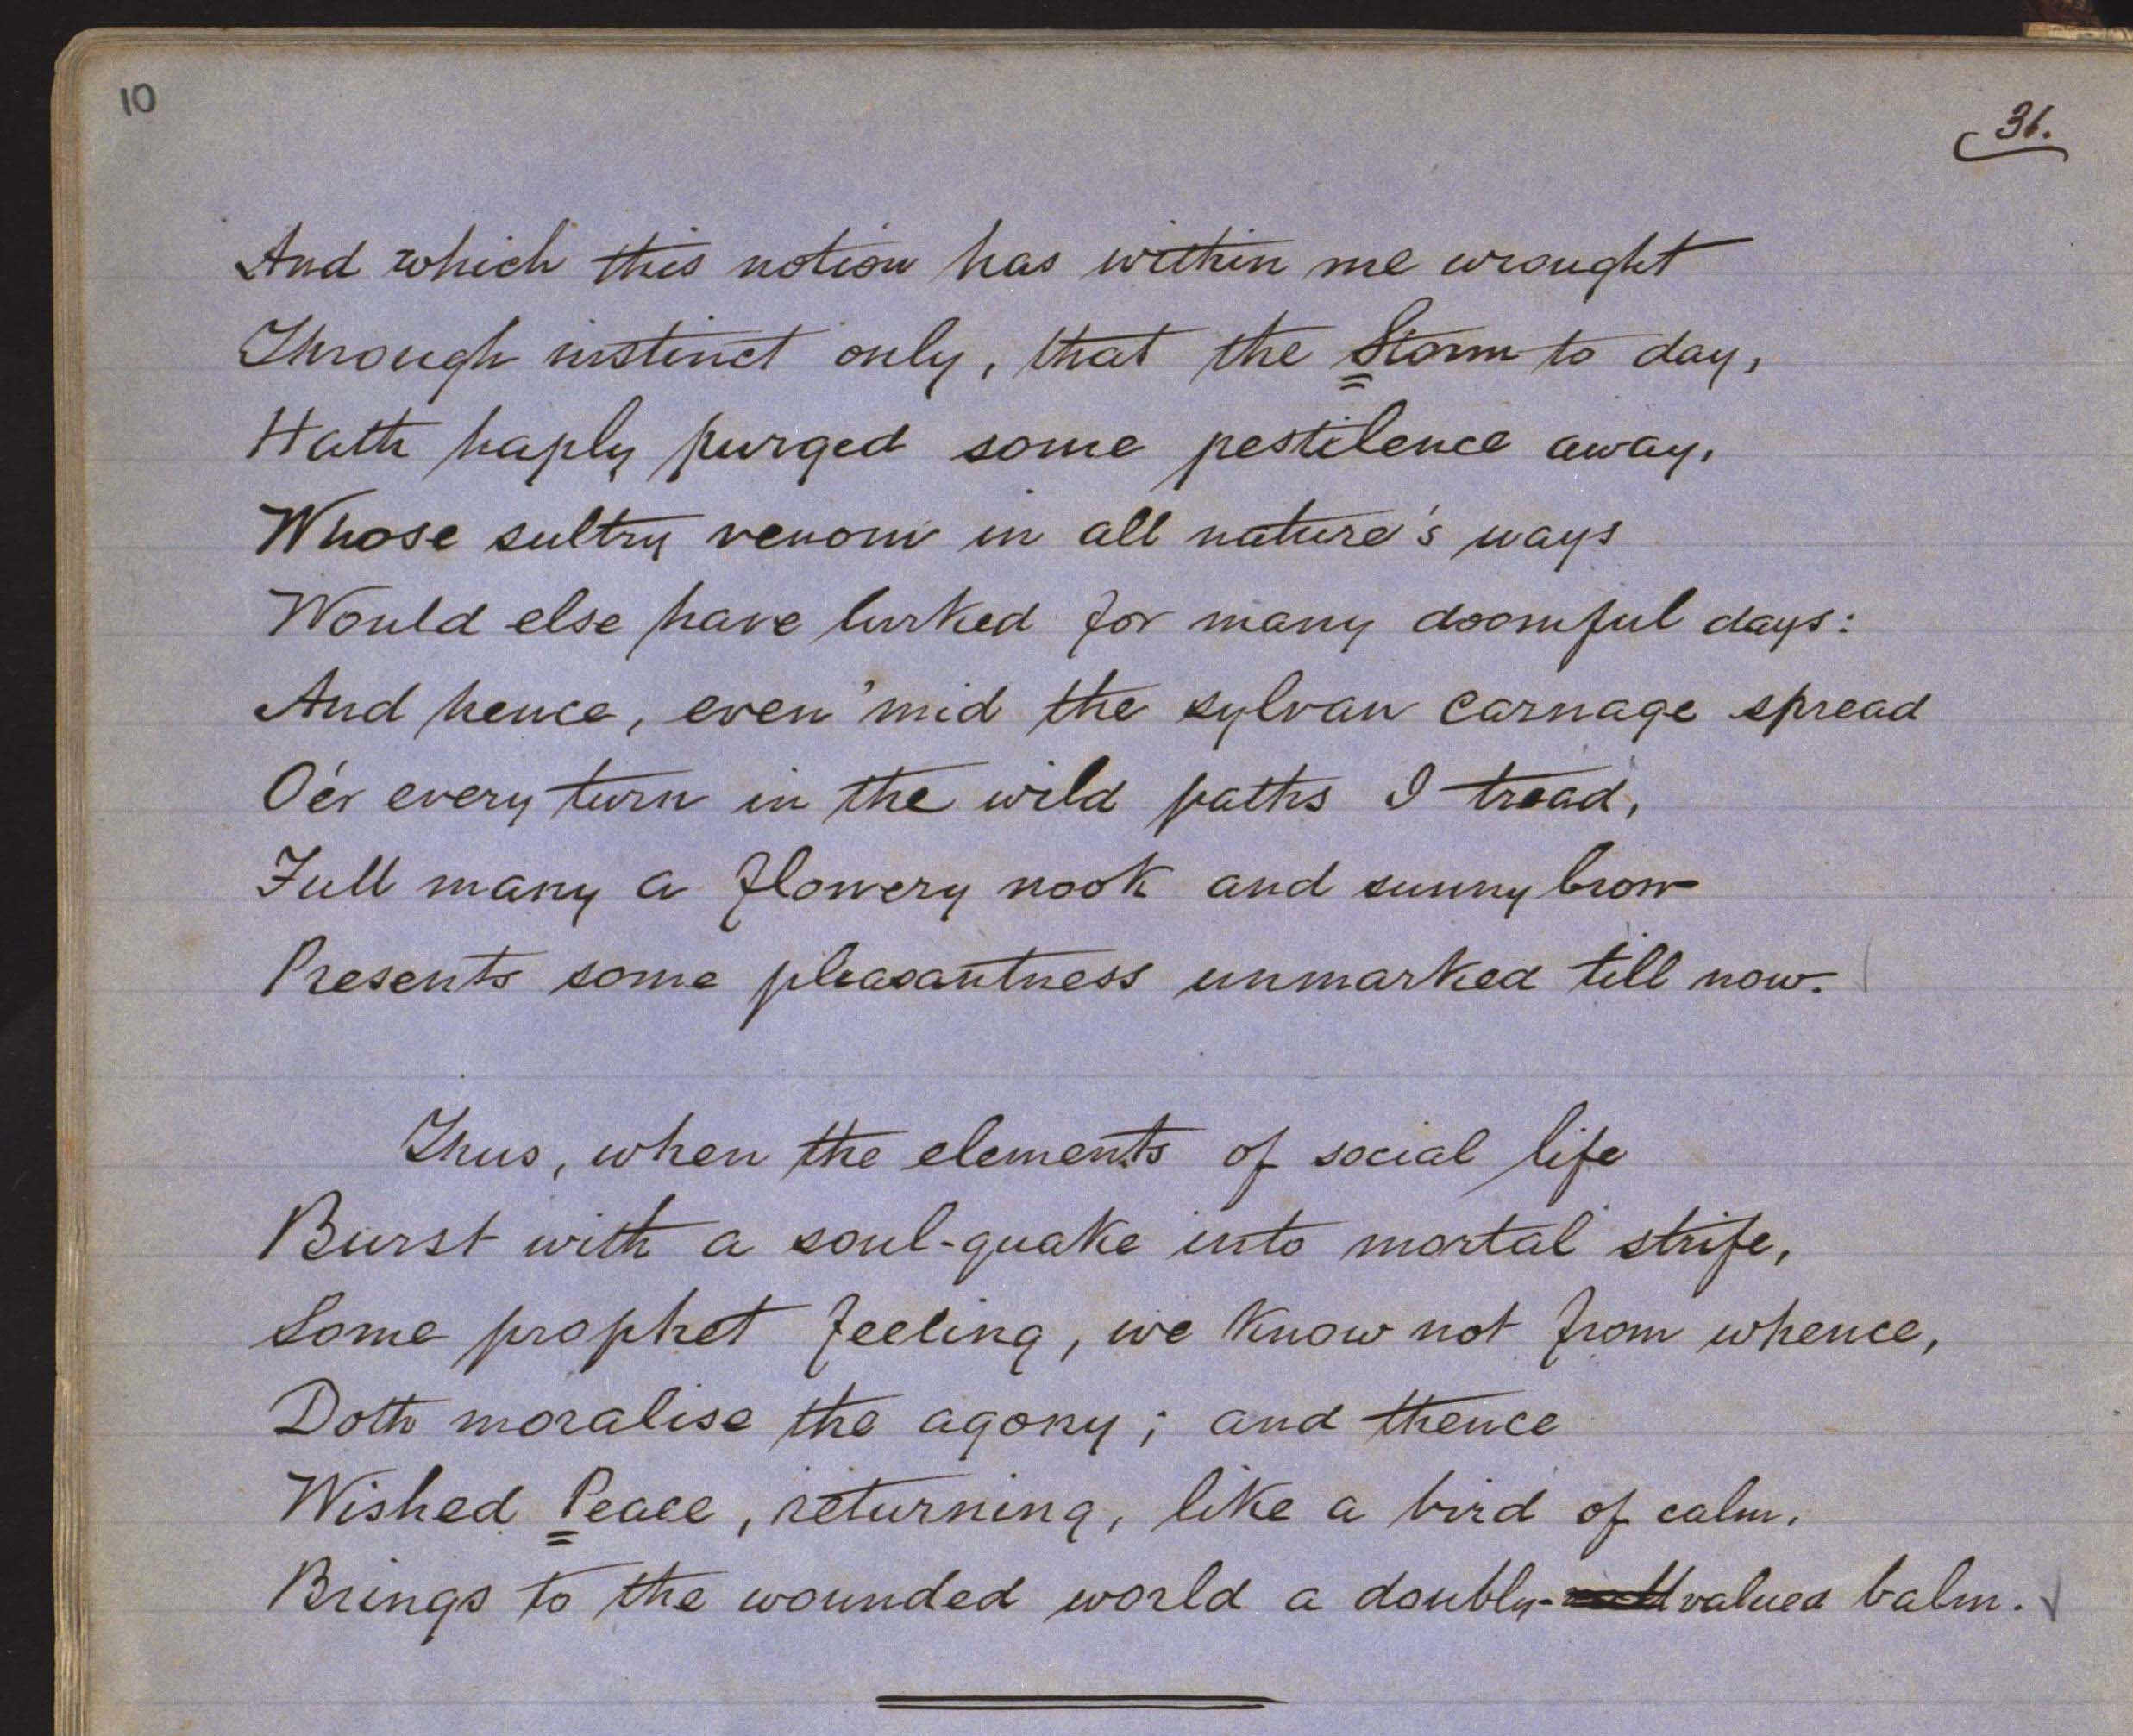 10
31.
And which this notion has within me wrought
Through instinct only, that the Storm to day,
Hath haply purged some pestilence away,
Whose sultry venom in all nature's ways
Would else have lurked for many doomful days:
And hence, even 'mid the sylvan carnage spread
O'er every turn in the wild paths I tread,
Full many a flowery nook and sunny brow
Presents some pleasantness unmarked till now.
Thus, when the elements of social life
Burst with a soul-quake into mortal strife,
Some prophet feeling, we know not from whence,
Doth moralise the agony; and thence
Wished Peace, returning, like a bird of calm,
Brings to the wounded world a doubly-valued balm.